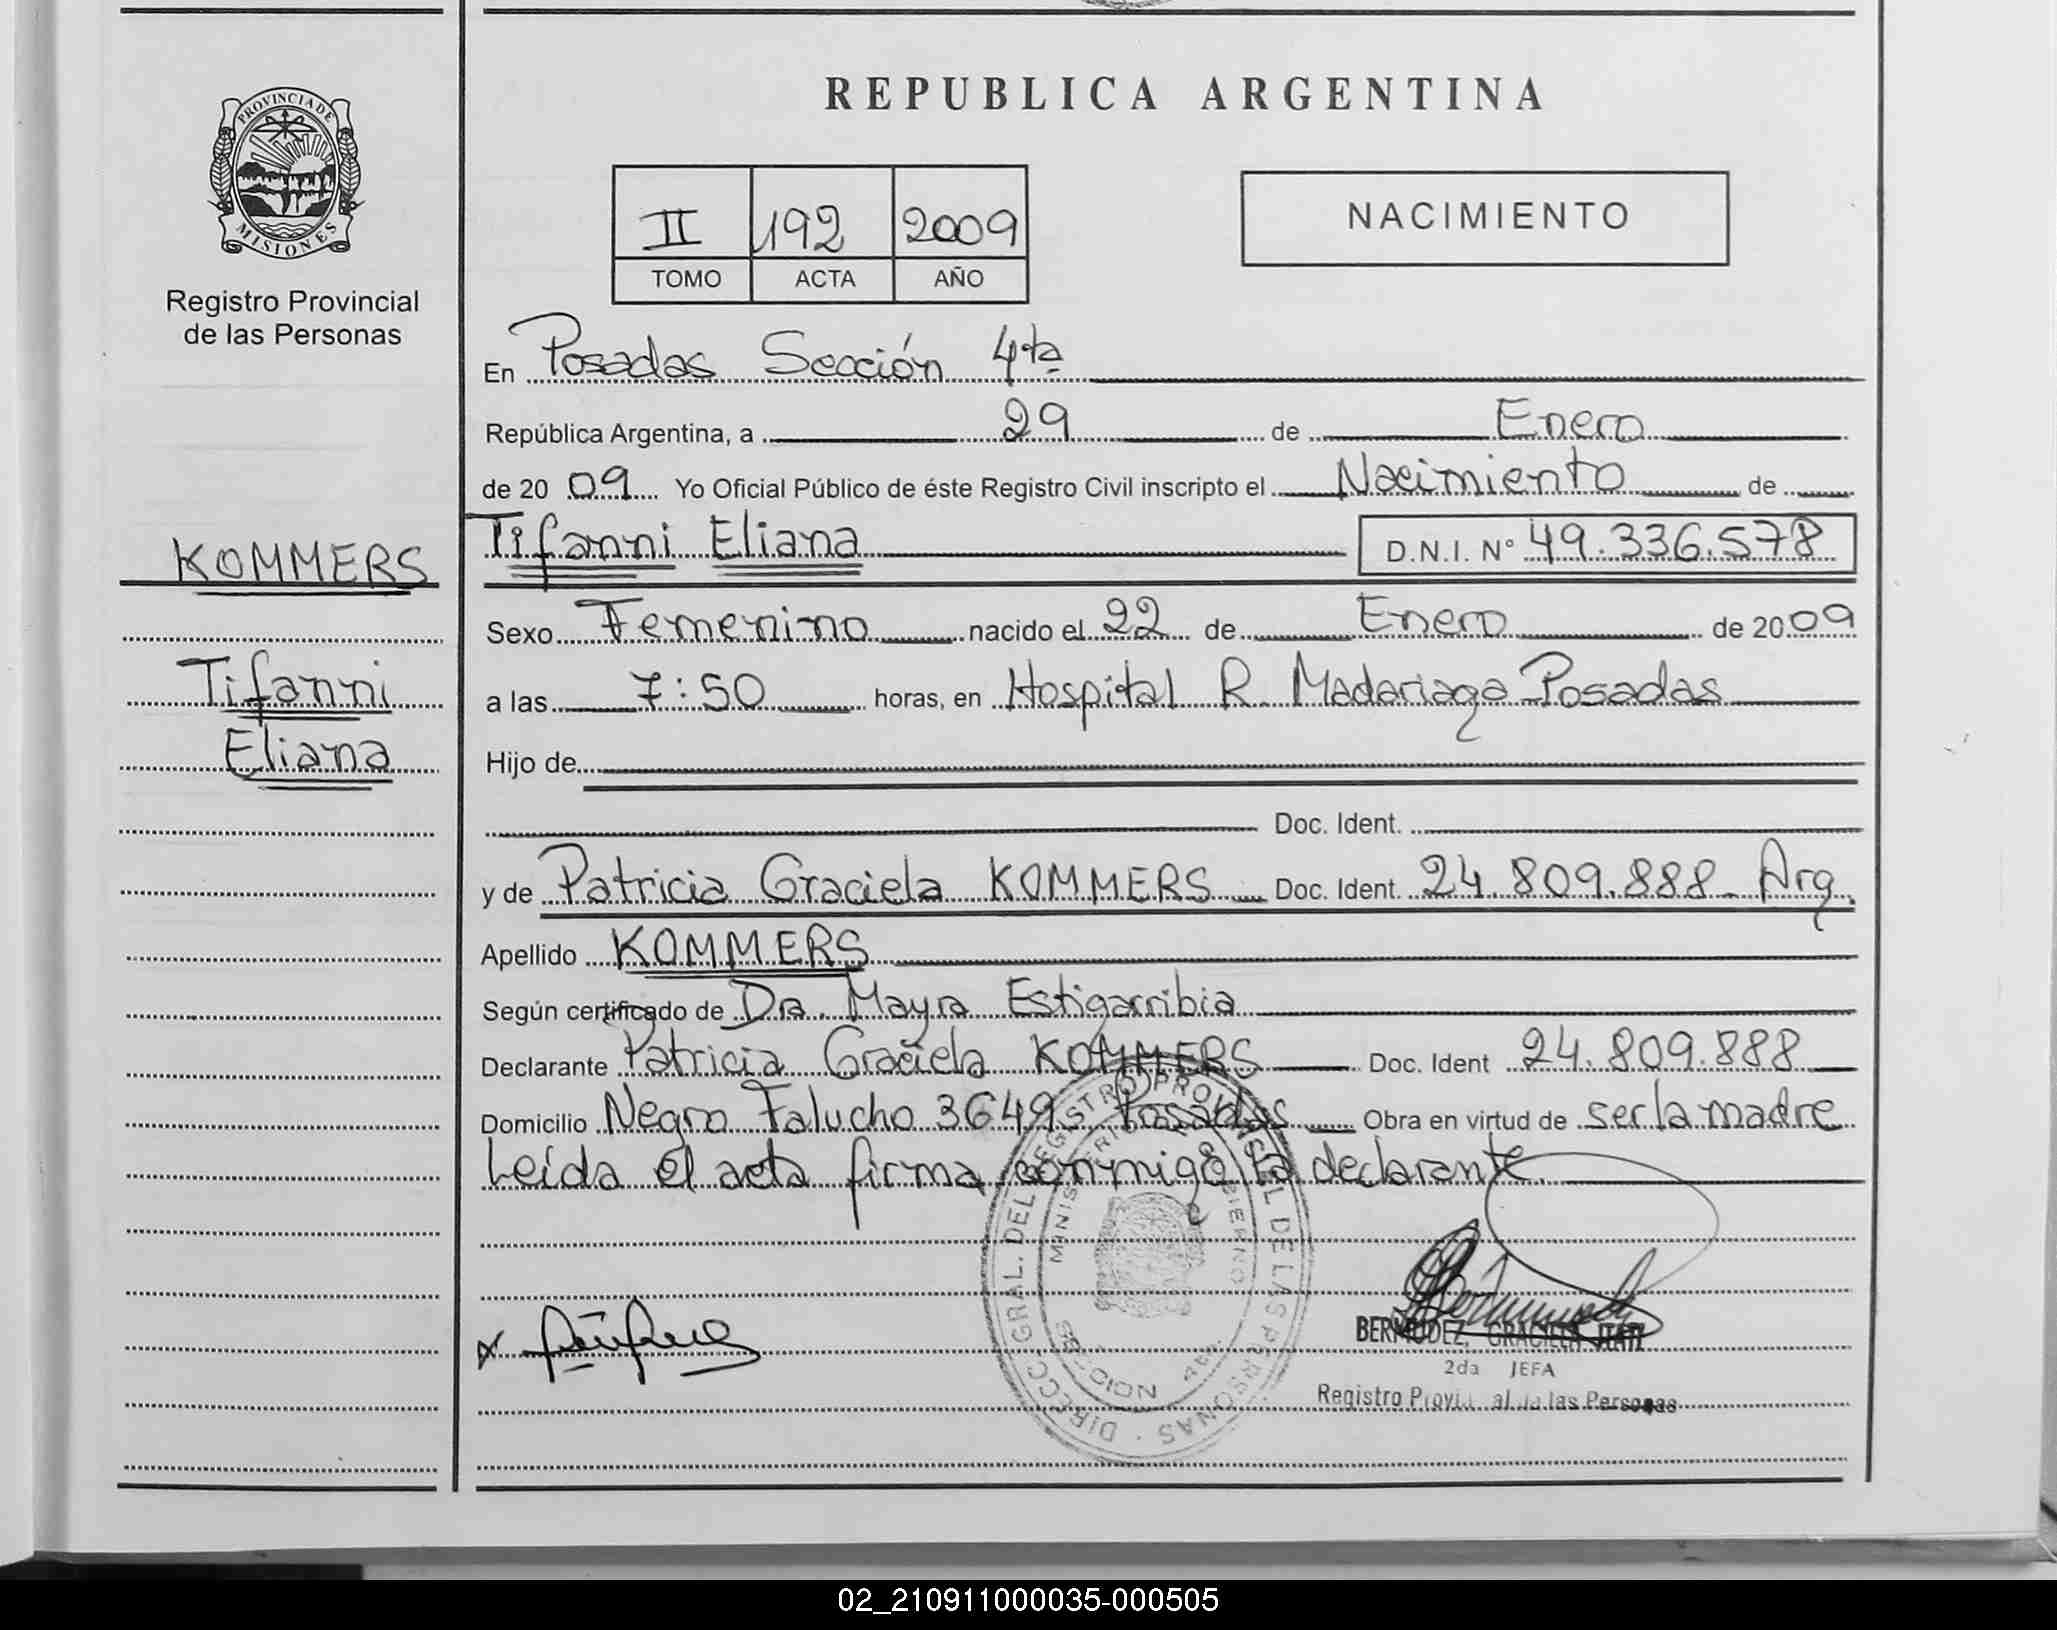 REPUBLICA ARGENTINA
PROVINCIA DE
MISIONES
Registro Provincial
de las Personas
II 192 2009
TOMO ACTA AÑO
NACIMIENTO
En Posadas Sección 4ta
República Argentina, a 29 de Enero
de 20 09 Yo Oficial Público de éste Registro Civil inscripto el Nacimiento de
KOMMERS
Tifanni Eliana D.N.I. N° 49.336.578
Sexo Femenino nacido el 22 de Enero de 20 09
Tifanni
a las 7:50 horas, en Hospital R. Madariaga Posadas
Eliana
Hijo de
Doc. Ident.
y de Patricia Graciela KOMMERS Doc. Ident. 24.809.888 Arg.
Apellido KOMMERS
Según certificado de Dra. Mayra Estigarribia
Declarante Patricia Graciela KOMMERS Doc. Ident 24.809.888
Domicilio Negro Falucho 3649 Posadas Obra en virtud de ser la madre
Leída el acta firma conmigo la declarante.
DIRECC. GRAL. DEL REGISTRO PROVINCIAL DE LAS PERSONAS
SECCION 4ta.
BERMUDEZ, GRACIELA ITATI
2da JEFA
Registro Provincial de las Personas
02_210911000035-000505